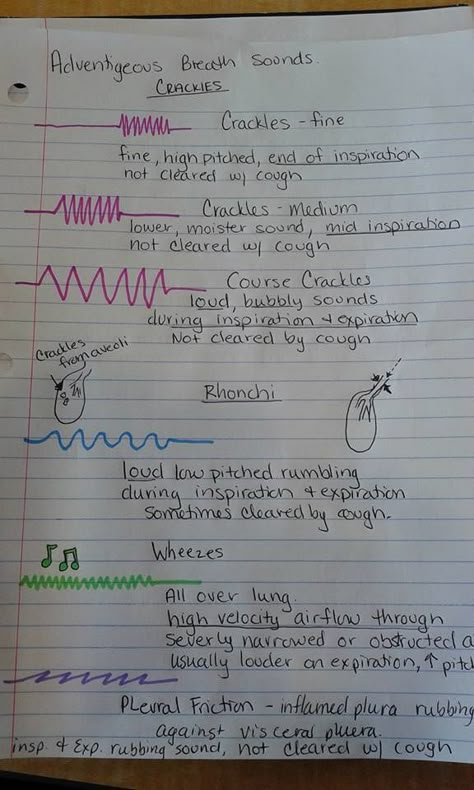 Adventigeous Breath Sounds.
CRACKIES
Crackles - fine
fine, high pitched, end of inspiration
not cleared w/ cough
Crackles - Medium
lower, moister sound, mid inspiration
not cleared w/ cough
Course Crackles
loud, bubbly sounds
during inspiration & expiration
Not cleared by cough
Crackles
from aveoli
Rhonchi
loud low pitched rumbling
during inspiration & expiration
Sometimes cleared by cough.
Wheezes
All over lung.
high velocity airflow through
severly narrowed or obstructed a
usually louder on expiration, ↑ pitc
PLeural Friction - inflamed plura rubbing
against visceral pluera.
insp. & Exp. rubbing sound, not cleared w/ cough